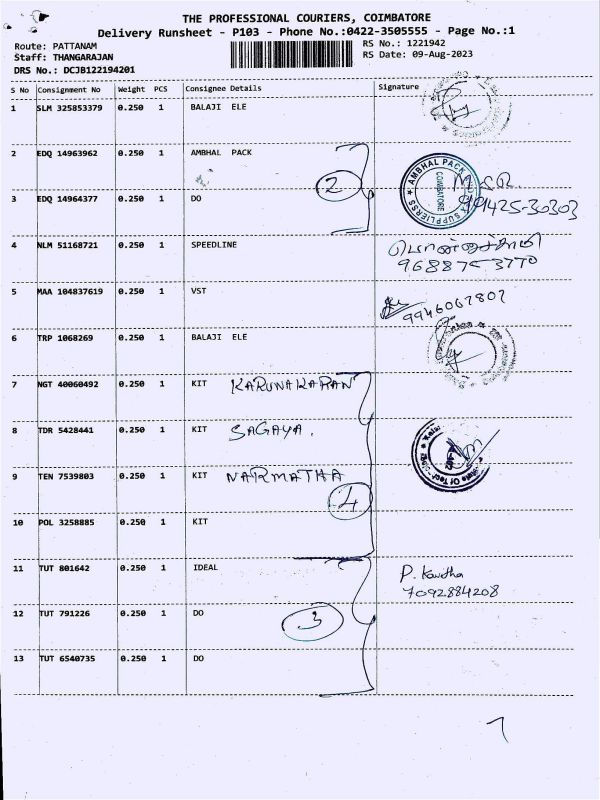 THE PROFESSIONAL COURIERS, COIMBATORE
Delivery Runsheet - P103 - Phone No.:0422-3505555 - Page No.:1
Route: PATTANAM RS No.: 1221942
Staff: THANGARAJAN RS Date: 09-Aug-2023
DRS No.: DCJB122194201
S No Consignment No Weight PCS Consignee Details Signature
1 SLM 325853379 0.250 1 BALAJI ELE
2 EDQ 14963962 0.250 1 AMBHAL PACK
AMBHAL PACK
COIMBATORE
SUPPLIERSS
2
3 EDQ 14964377 0.250 1 DO
99425-30303
4 NLM 51168721 0.250 1 SPEEDLINE
பொன்னுச்சாமி
9688753770
5 MAA 104837619 0.250 1 VST
9946067802
6 TRP 1068269 0.250 1 BALAJI ELE
7 NGT 40060492 0.250 1 KIT KARUNAKARAN
8 TDR 5428441 0.250 1 KIT SAGAYA.
9 TEN 7539803 0.250 1 KIT NARMATHA
4
10 POL 3258885 0.250 1 KIT
11 TUT 801642 0.250 1 IDEAL
P. Kavitha
7092884208
12 TUT 791226 0.250 1 DO
3
13 TUT 6540735 0.250 1 DO